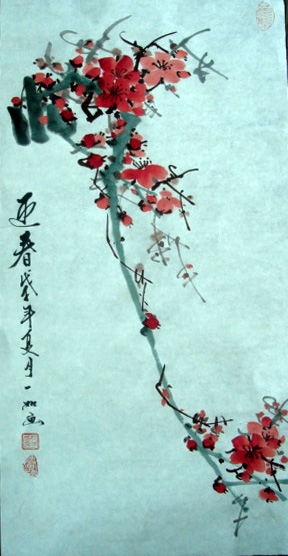 迎春戊子年夏月一画